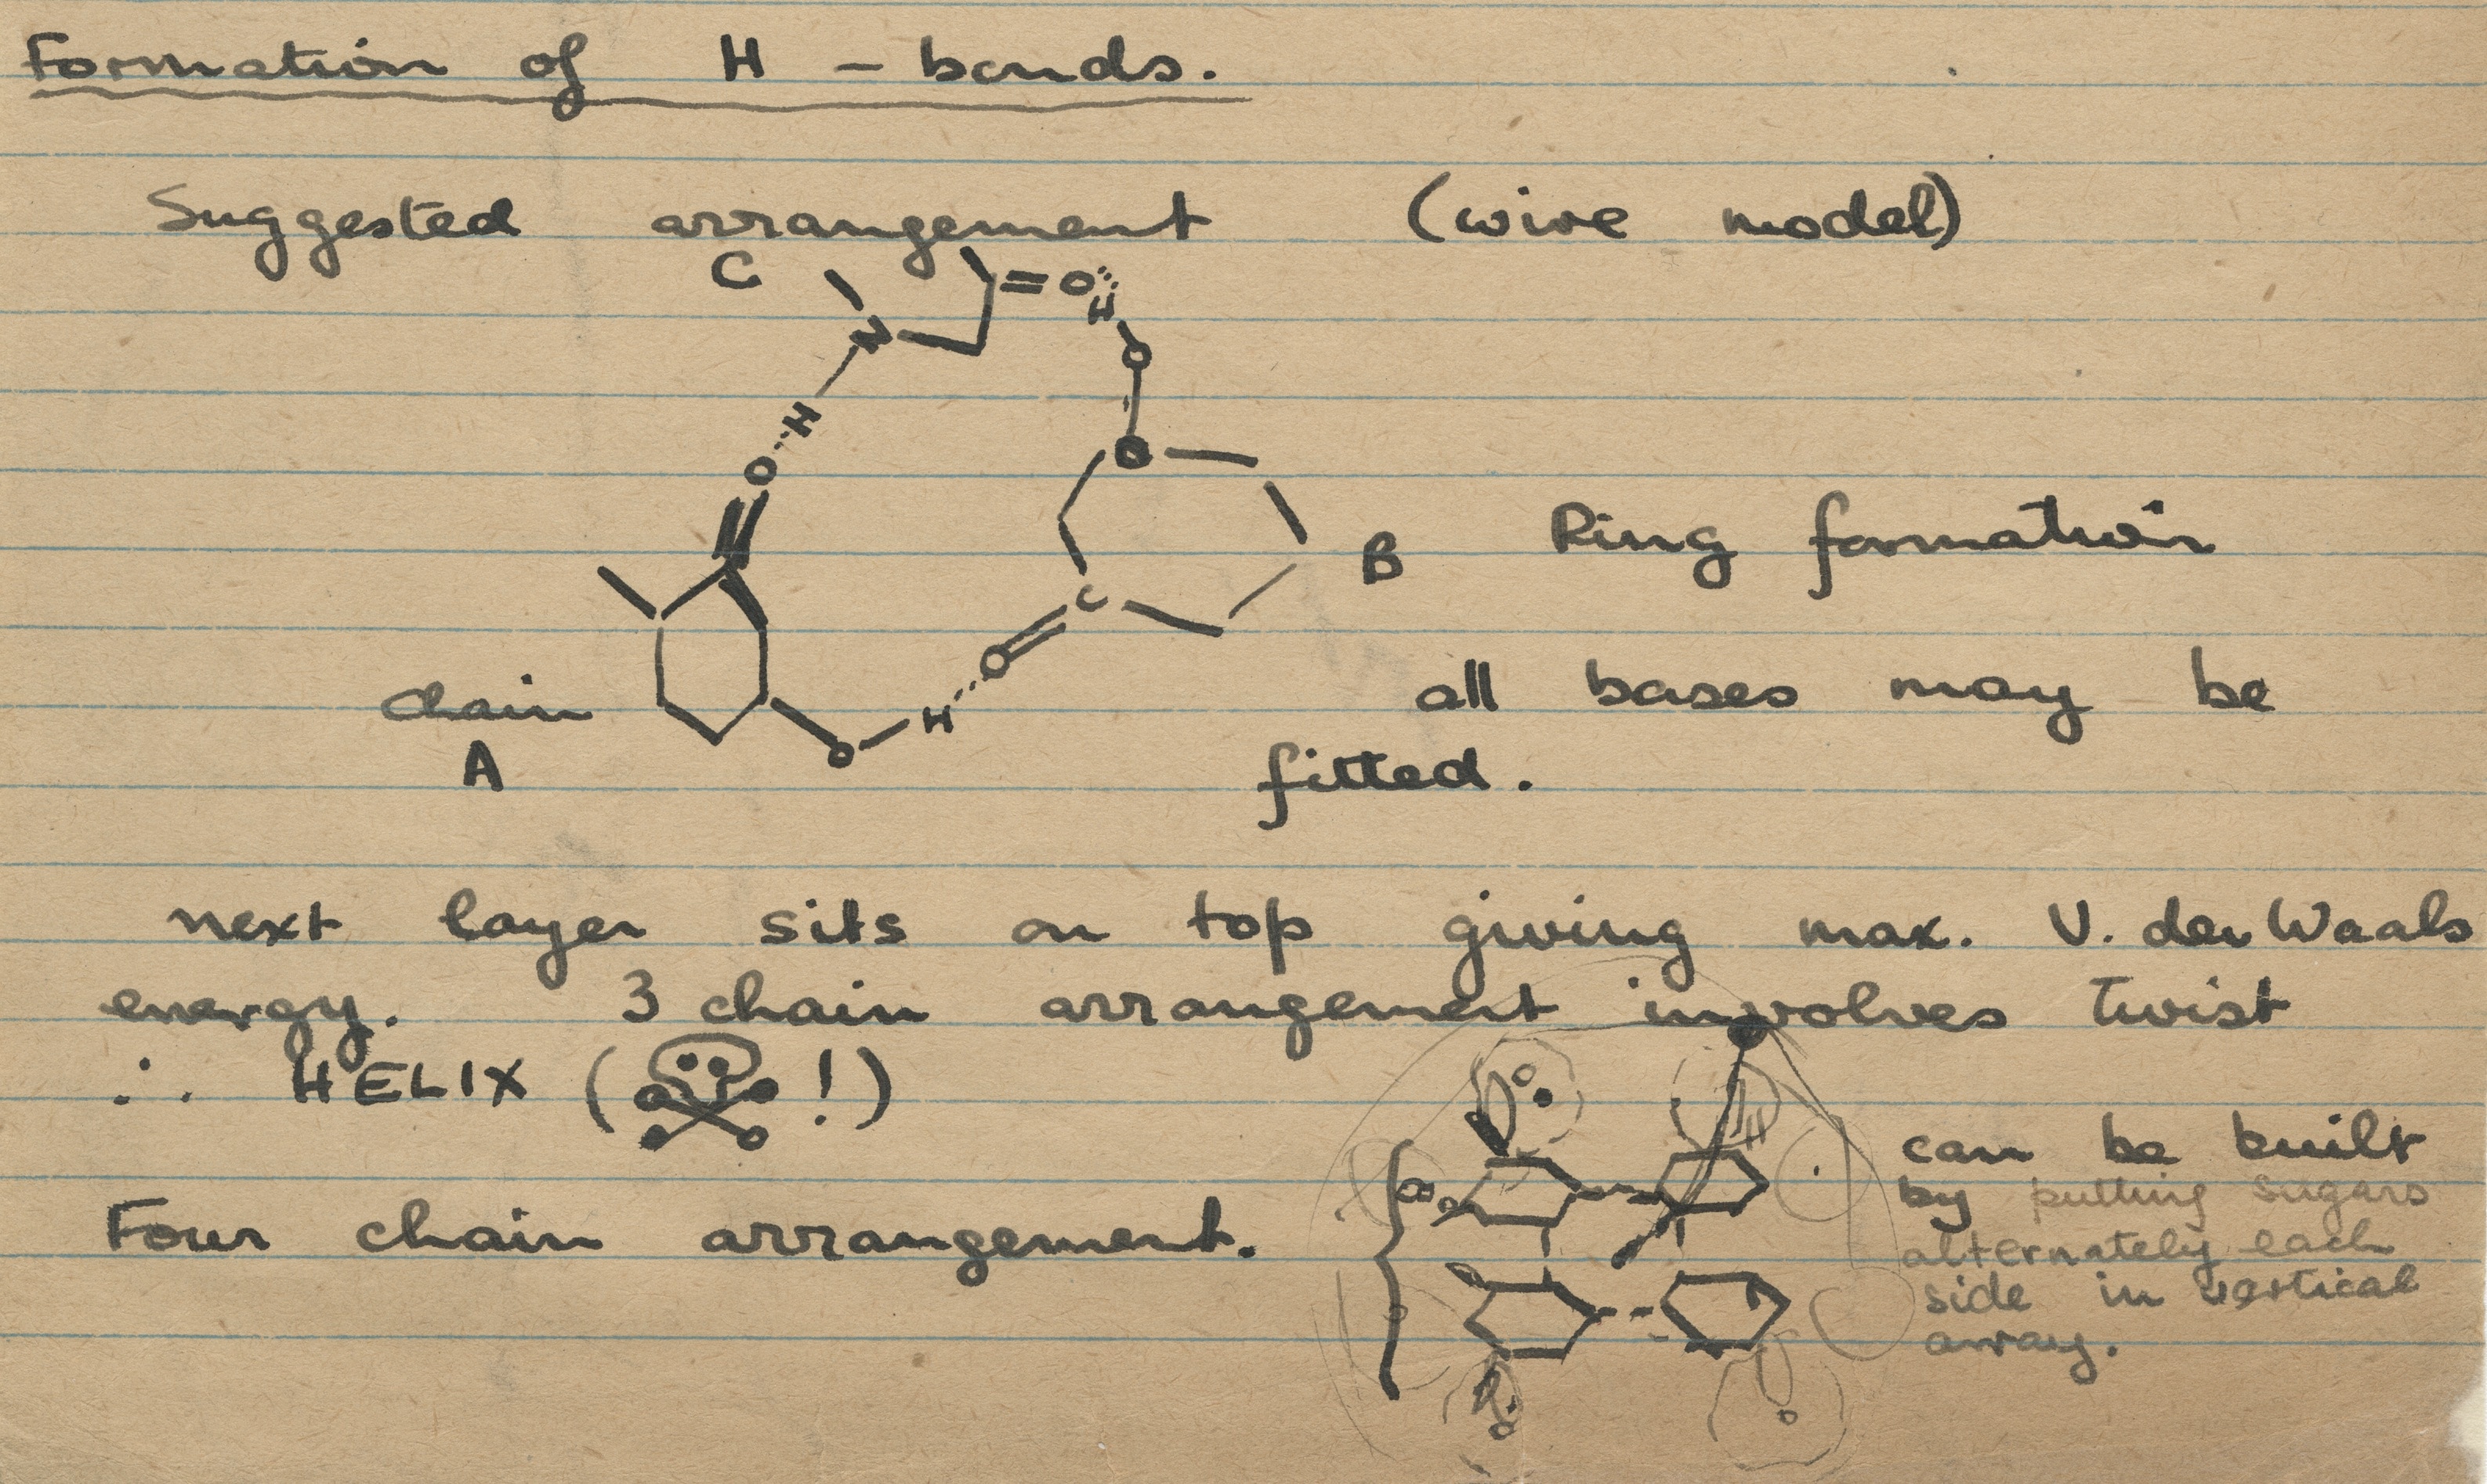 Formation of H - bonds.
Suggested arrangement (wire model)
C
=O
H
N
O
H
O
O
B Ring formation
C
O
chain
A
H
O
all bases may be
fitted.
next layer sits on top giving max. V. der Waals
energy. 3 chain arrangement involves twist
∴ HELIX ( !)
Four chain arrangement.
can be built
by putting sugars
alternately each
side in vertical
array.